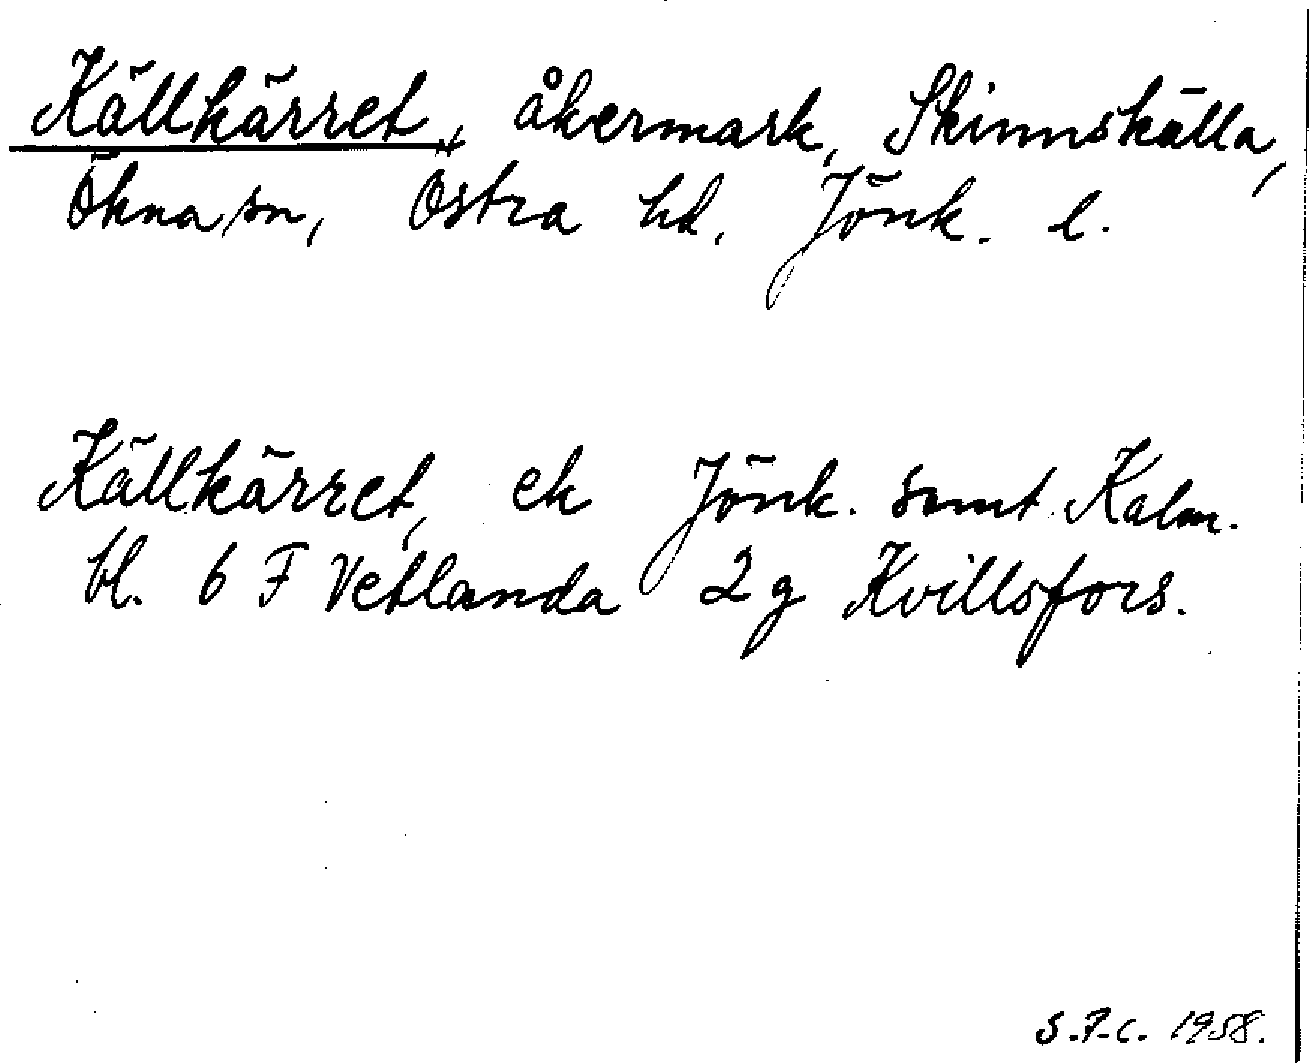 Källkärret, åkermark, Skinnskälla,
Ökna sn, Östra hd. Jönk. l.
Källkärret, ek Jönk. samt Kalm.
bl. 6 F Vetlanda 2 g Kvillsfors.
S.F.C. 1958.